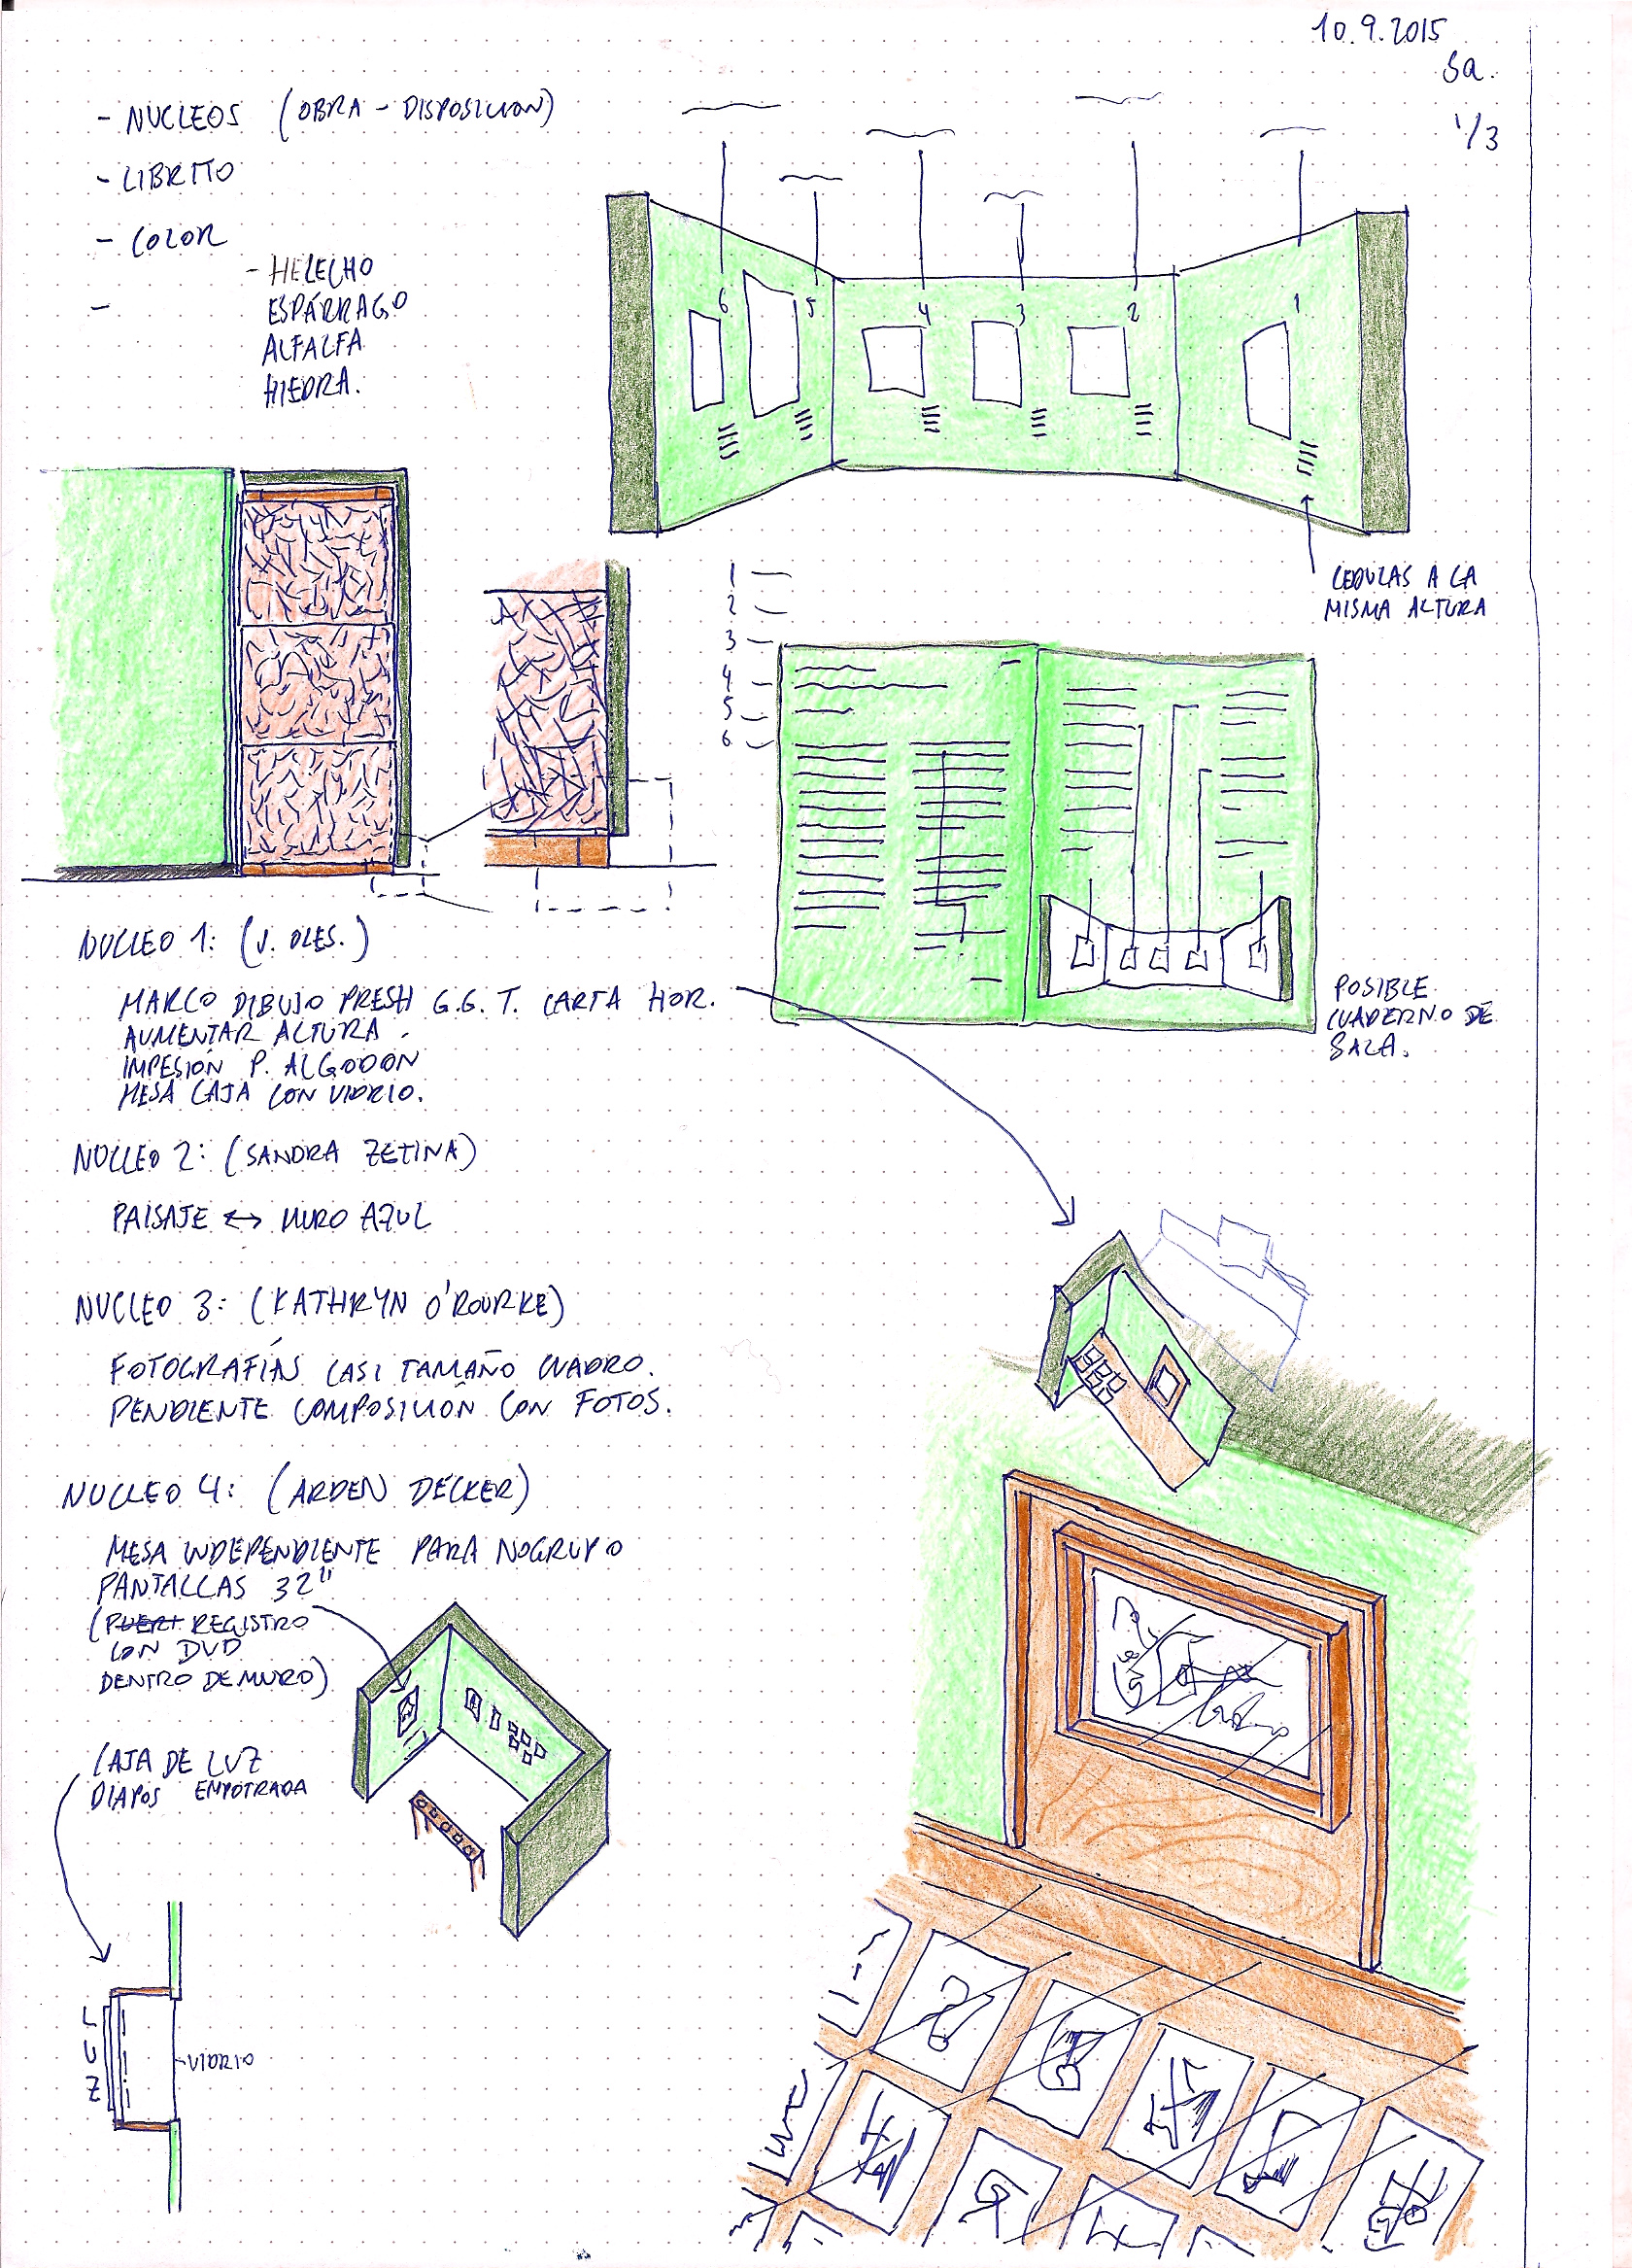 10.9.2015
Sa.
1/3
- NUCLEOS (OBRA - DISPOSICION)
- LIBRITO
- COLOR
- HELECHO
-
ESPÁRRAGO
ALFALFA
HIEDRA.
6
5
4
3
2
1
CEDULAS A LA
MISMA ALTURA
1
2
3
4
5
6
POSIBLE
CUADERNO DE
SALA.
NUCLEO 1: (J. OLES.)
MARCO DIBUJO PRESH G.G. T. CARTA HOR.
AUMENTAR ALTURA
IMPESIÓN P. ALGODÓN
MESA CAJA CON VIDRIO.
NUCLEO 2: (SANDRA ZETINA)
PAISAJE ↔ MURO AZUL
NUCLEO 3: (KATHRYN O'ROURKE)
FOTOGRAFÍAS CASI TAMAÑO CUADRO.
PENDIENTE COMPOSICIÓN CON FOTOS.
NUCLEO 4: (ARDEN DECKER)
MESA INDEPENDIENTE PARA NOGRUPO
PANTALLAS 32"
(PUERT REGISTRO
CON DVD
DENTRO DE MURO)
CAJA DE LUZ
DIAPOS EMPOTRADA
LUZ
VIDRIO